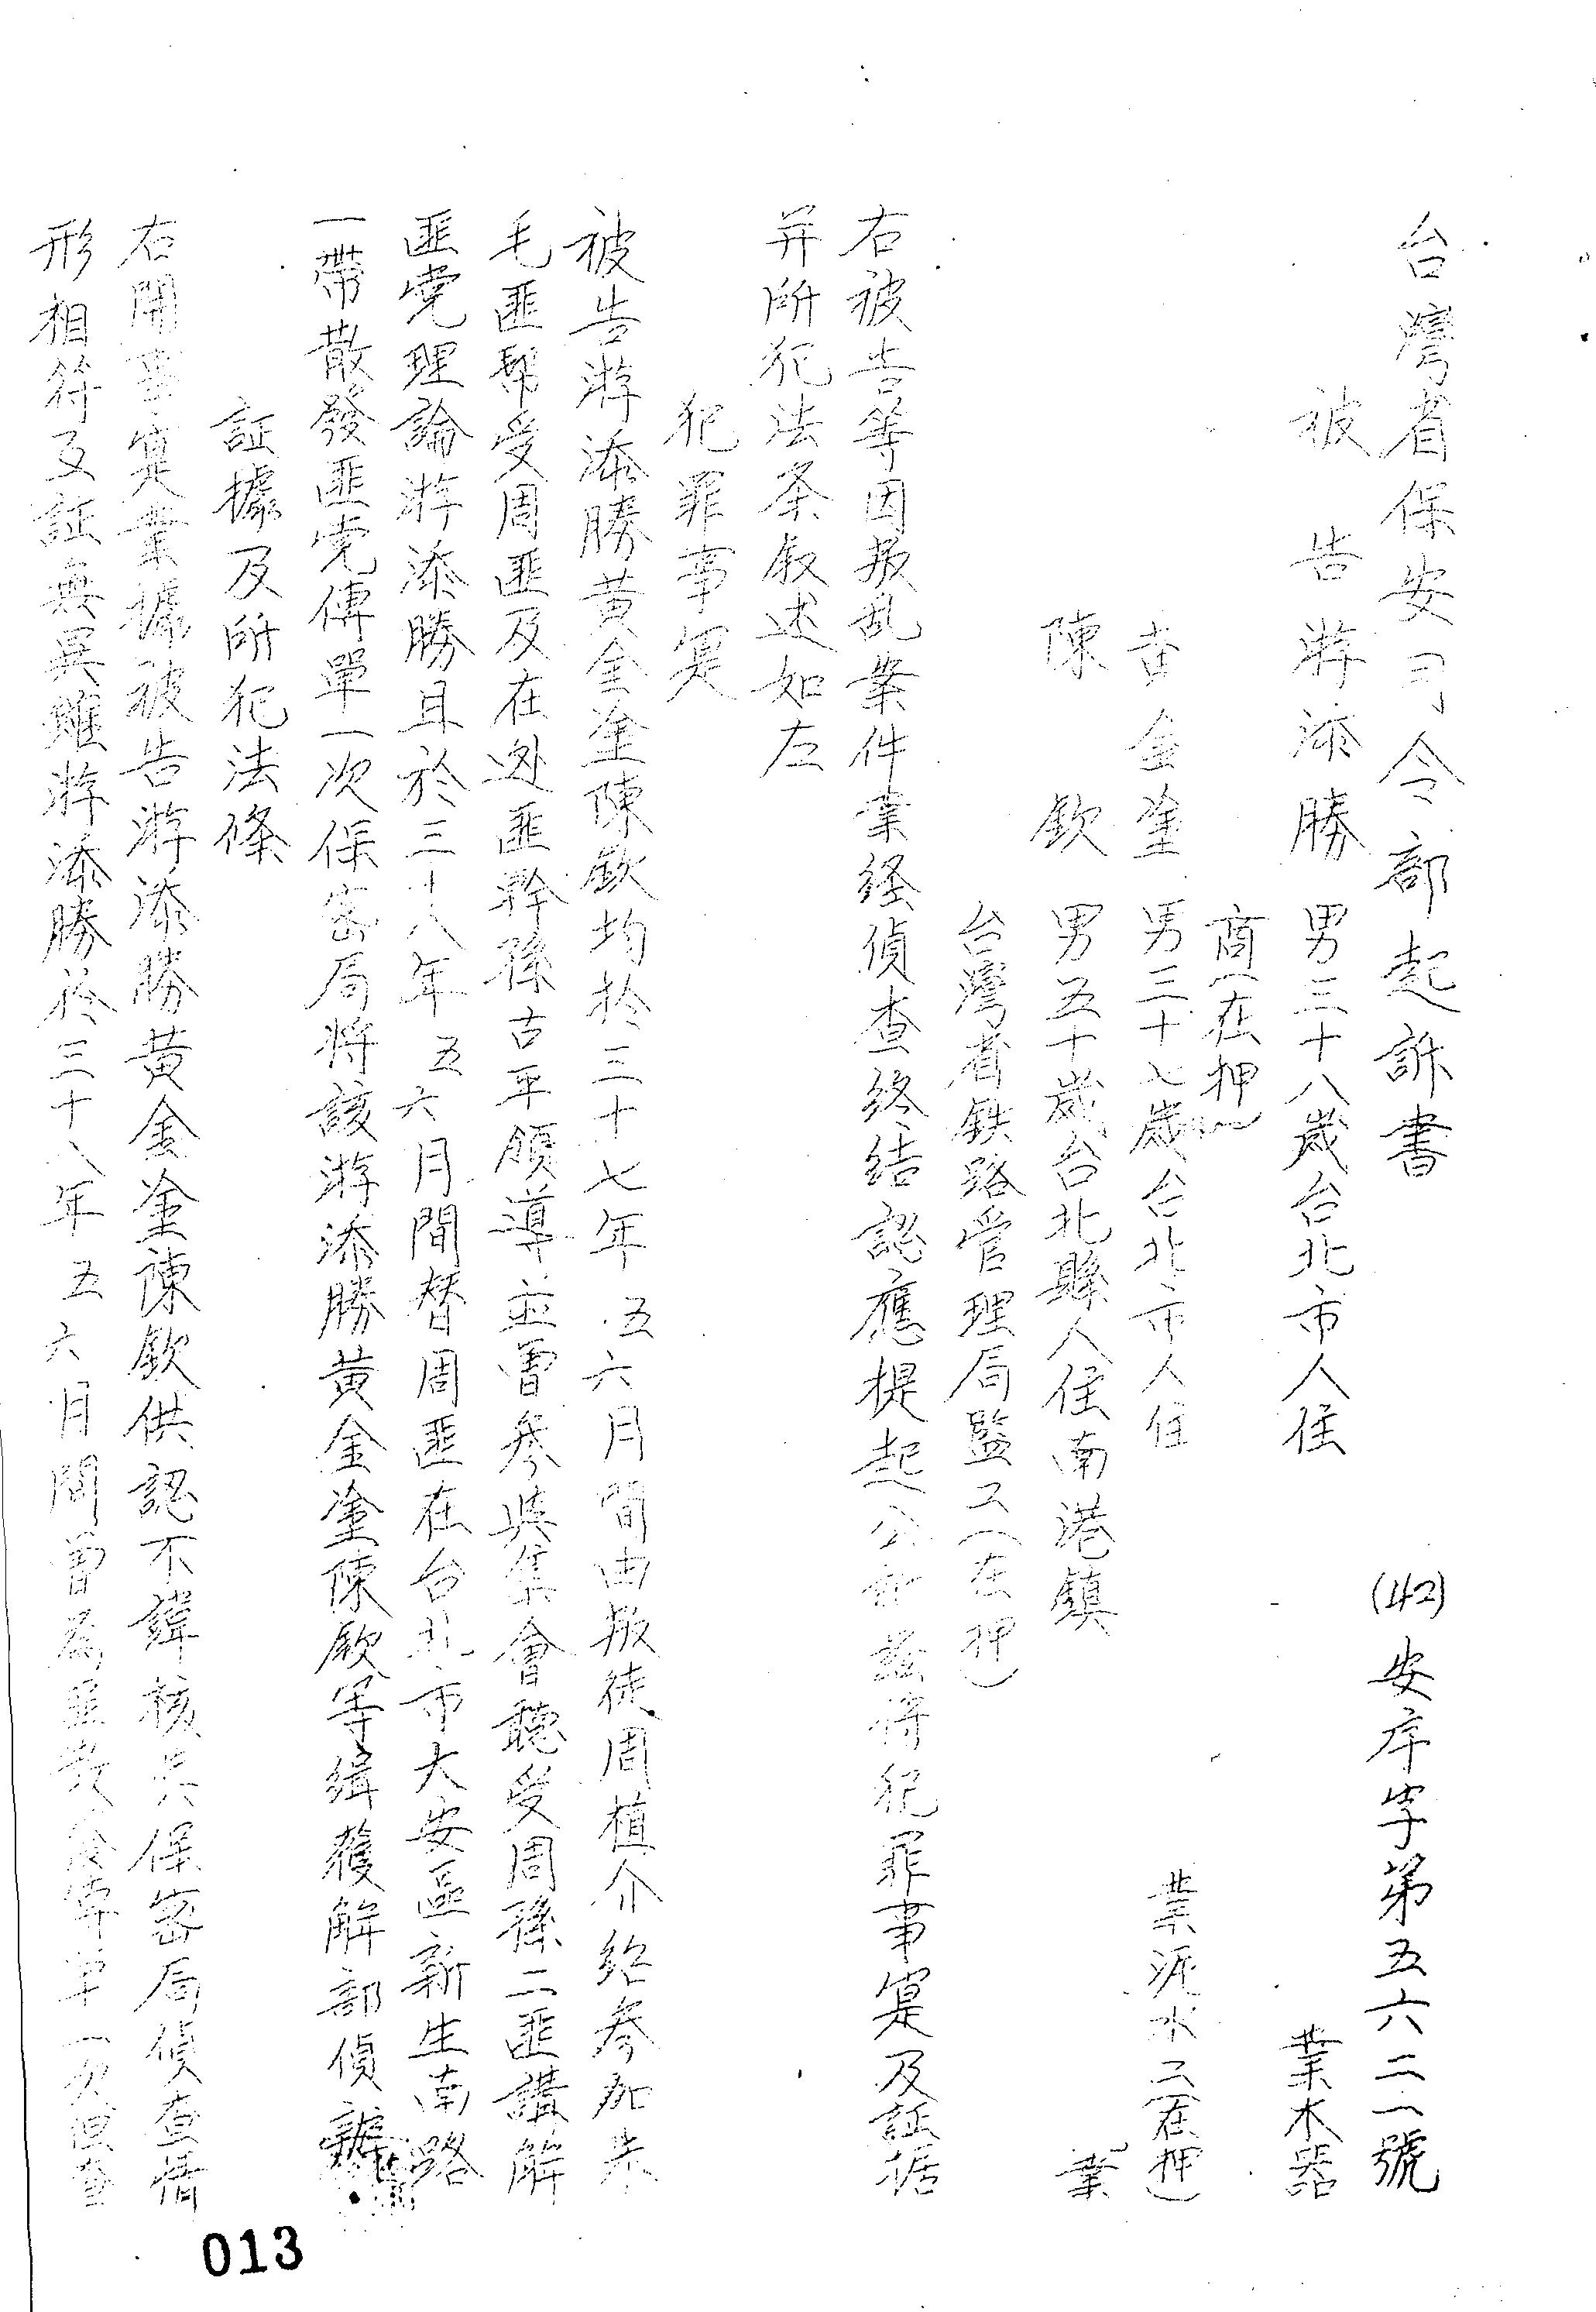 台灣省保安司令部起訴書 (42)安序字第五六二一號
被告游添勝 男三十八歲台北市人住 業木器
商(在押)
黃金塗 男三十七歲台北市人住 業泥水工(在押)
陳欽 男五十歲台北縣人住南港鎮 業
台灣省鉄路管理局監工(在押)
右被告等因叛乱案件業経偵查終結認應提起公訴茲将犯罪事寔及証据
并所犯法条叙述如左
犯罪事寔
被告游添勝黃金塗陳欽均於三十七年五六月間由叛徒周植介紹參加朱
毛匪幫受周匪及在逃匪幹孫古平領導並曾參與集會聽受周孫二匪講解
匪党理論游添勝且於三十八年五六月間替周匪在台北市大安區新生南路
一帶散發匪党傳單一次保密局将該游添勝黃金塗陳欽等緝獲解部偵辦
証據及所犯法條
右開事寔業據被告游添勝黃金塗陳欽供認不諱核与保密局偵查情
形相符互証無異雖游添勝於三十八年五六月間曾為匪散發傳單一次但查
013